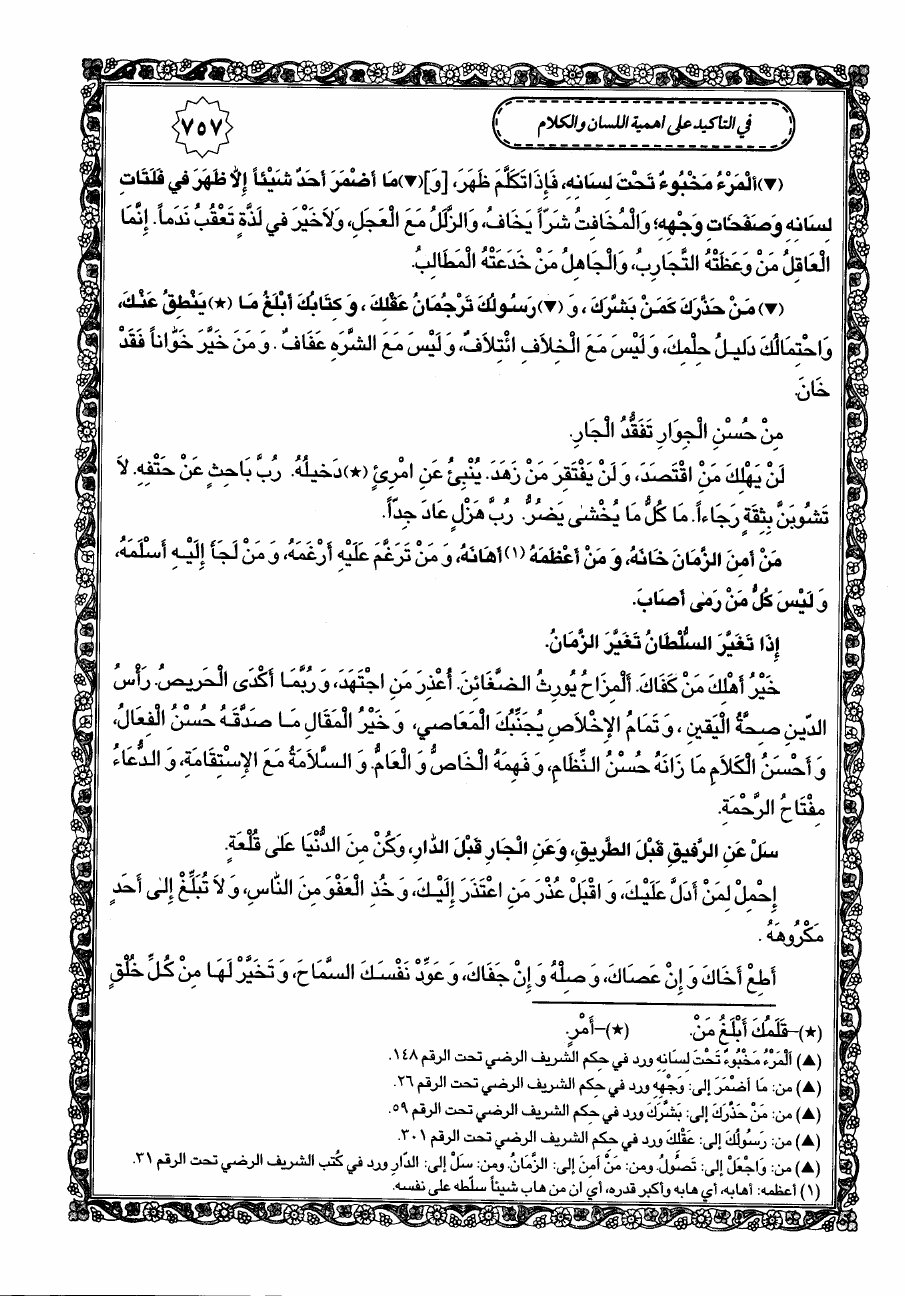 في التأكيد على أهمية اللسان والكلام
٧٥٧
(▼) أَلْمَرْءُ مَخْبُوءٌ تَحْتَ لِسَانِهِ، فَإِذَا تَكَلَّمَ ظَهَرَ، [وَ] (▼) مَا أَضْمَرَ أَحَدٌ شَيْئاً إِلاَّ ظَهَرَ في فَلَتَاتِ
لِسَانِهِ وَصَفَحَاتِ وَجْهِهِ؛ وَالْمُخَافِتُ شَرّاً يَخَافُ، وَالزَّلَلُ مَعَ الْعَجَلِ، وَلاَ خَيْرَ في لَذَّةٍ تَعْقُبُ نَدَماً. إِنَّمَا
الْعَاقِلُ مَنْ وَعَظَتْهُ التَّجَارِبُ، وَالْجَاهِلُ مَنْ خَدَعَتْهُ الْمَطَالِبُ.
(▼) مَنْ حَذَّرَكَ كَمَنْ بَشَّرَكَ، وَ (▼) رَسُولُكَ تَرْجُمَانُ عَقْلِكَ، وَ كِتَابُكَ أَبْلَغُ مَا (★) يَنْطِقُ عَنْكَ،
وَاحْتِمَالُكَ دَليلُ حِلْمِكَ، وَ لَيْسَ مَعَ الْخِلاَفِ ائْتِلاَفٌ، وَ لَيْسَ مَعَ الشَّرَهِ عَفَافٌ. وَ مَنْ خَيَّرَ خَوَّاناً فَقَدْ
خَانَ.
مِنْ حُسْنِ الْجِوَارِ تَفَقُّدُ الْجَارِ.
لَنْ يَهْلِكَ مَنْ اقْتَصَدَ، وَ لَنْ يَفْتَقِرَ مَنْ زَهَدَ. يُنْبِئُ عَنِ امْرِئٍ (★) دَخيلُهُ. رُبَّ بَاحِثٍ عَنْ حَتْفِهِ. لاَ
تَشُوبَنَّ بِثِقَةٍ رَجَاءاً. مَا كُلُّ مَا يُخْشى يَضُرُّ. رُبَّ هَزْلٍ عَادَ جِدّاً.
مَنْ أَمِنَ الزَّمَانَ خَانَهُ، وَ مَنْ أَعْظَمَهُ (١) أَهَانَهُ، وَ مَنْ تَرَغَّمَ عَلَيْهِ أَرْغَمَهُ، وَ مَنْ لَجَأَ إِلَيْهِ أَسْلَمَهُ،
وَ لَيْسَ كُلُّ مَنْ رَمى أَصَابَ.
إِذَا تَغَيَّرَ السُّلْطَانُ تَغَيَّرَ الزَّمَانُ.
خَيْرُ أَهْلِكَ مَنْ كَفَاكَ. أَلْمِزَاحُ يُورِثُ الضَّغَائِنَ. أُعْذِرَ مَنِ اجْتَهَدَ، وَ رُبَّمَا أَكْدَى الْحَريصُ. رَأْسُ
الدّينِ صِحَّةُ الْيَقينِ، وَ تَمَامُ الإِخْلاَصِ يُجَنِّبُكَ الْمَعَاصي، وَ خَيْرُ الْمَقَالِ مَا صَدَّقَهُ حُسْنُ الْفِعَالُ،
وَ أَحْسَنُ الْكَلاَمِ مَا زَانَهُ حُسْنُ النِّظَامِ، وَ فَهِمَهُ الْخَاصُّ وَ الْعَامُّ. وَ السَّلاَمَةُ مَعَ الإِسْتِقَامَةِ، وَ الدُّعَاءُ
مِفْتَاحُ الرَّحْمَةِ.
سَلْ عَنِ الرَّفيقِ قَبْلَ الطَّريقِ، وَعَنِ الْجَارِ قَبْلَ الدَّارِ، وَكُنْ مِنَ الدُّنْيَا عَلى قُلْعَةٍ.
إِحْمِلْ لِمَنْ أَدَلَّ عَلَيْكَ، وَ اقْبَلْ عُذْرَ مَنِ اعْتَذَرَ إِلَيْكَ، وَ خُذِ الْعَفْوَ مِنَ النَّاسِ، وَ لاَ تُبَلِّغْ إِلى أَحَدٍ
مَكْرُوهَهُ.
أَطِعْ أَخَاكَ وَ إِنْ عَصَاكَ، وَ صِلْهُ وَ إِنْ جَفَاكَ، وَ عَوِّدْ نَفْسَكَ السَّمَاحَ، وَ تَخَيَّرْ لَهَا مِنْ كُلِّ خُلْقٍ
(★)-قَلَمُكَ أَبْلَغُ مَنْ. (★)-أَمْرٍ.
(▲) أَلْمَرْءُ مَخْبُوءٌ تَحْتَ لِسَانِهِ ورد في حكم الشريف الرضي تحت الرقم ١٤٨.
(▲) من: مَا أَضْمَرَ إلى: وَجْهِهِ ورد في حكم الشريف الرضي تحت الرقم ٢٦.
(▲) من: مَنْ حَذَّرَكَ إلى: بَشَّرَكَ ورد في حكم الشريف الرضي تحت الرقم ٥٩.
(▲) من: رَسُولُكَ إلى: عَقْلِكَ ورد في حكم الشريف الرضي تحت الرقم ٣٠١.
(▲) من: وَاجْعَلْ إلى: تَصُولُ ومن: مَنْ أَمِنَ إلى: الزَّمَانُ. ومن: سَلْ إلى: الدَّارِ ورد في كُتب الشريف الرضي تحت الرقم ٣١.
(١) أعظمه: أهابه، أي هابه وأكبر قدره، أي أن من هاب شيئاً سلّطه على نفسه.